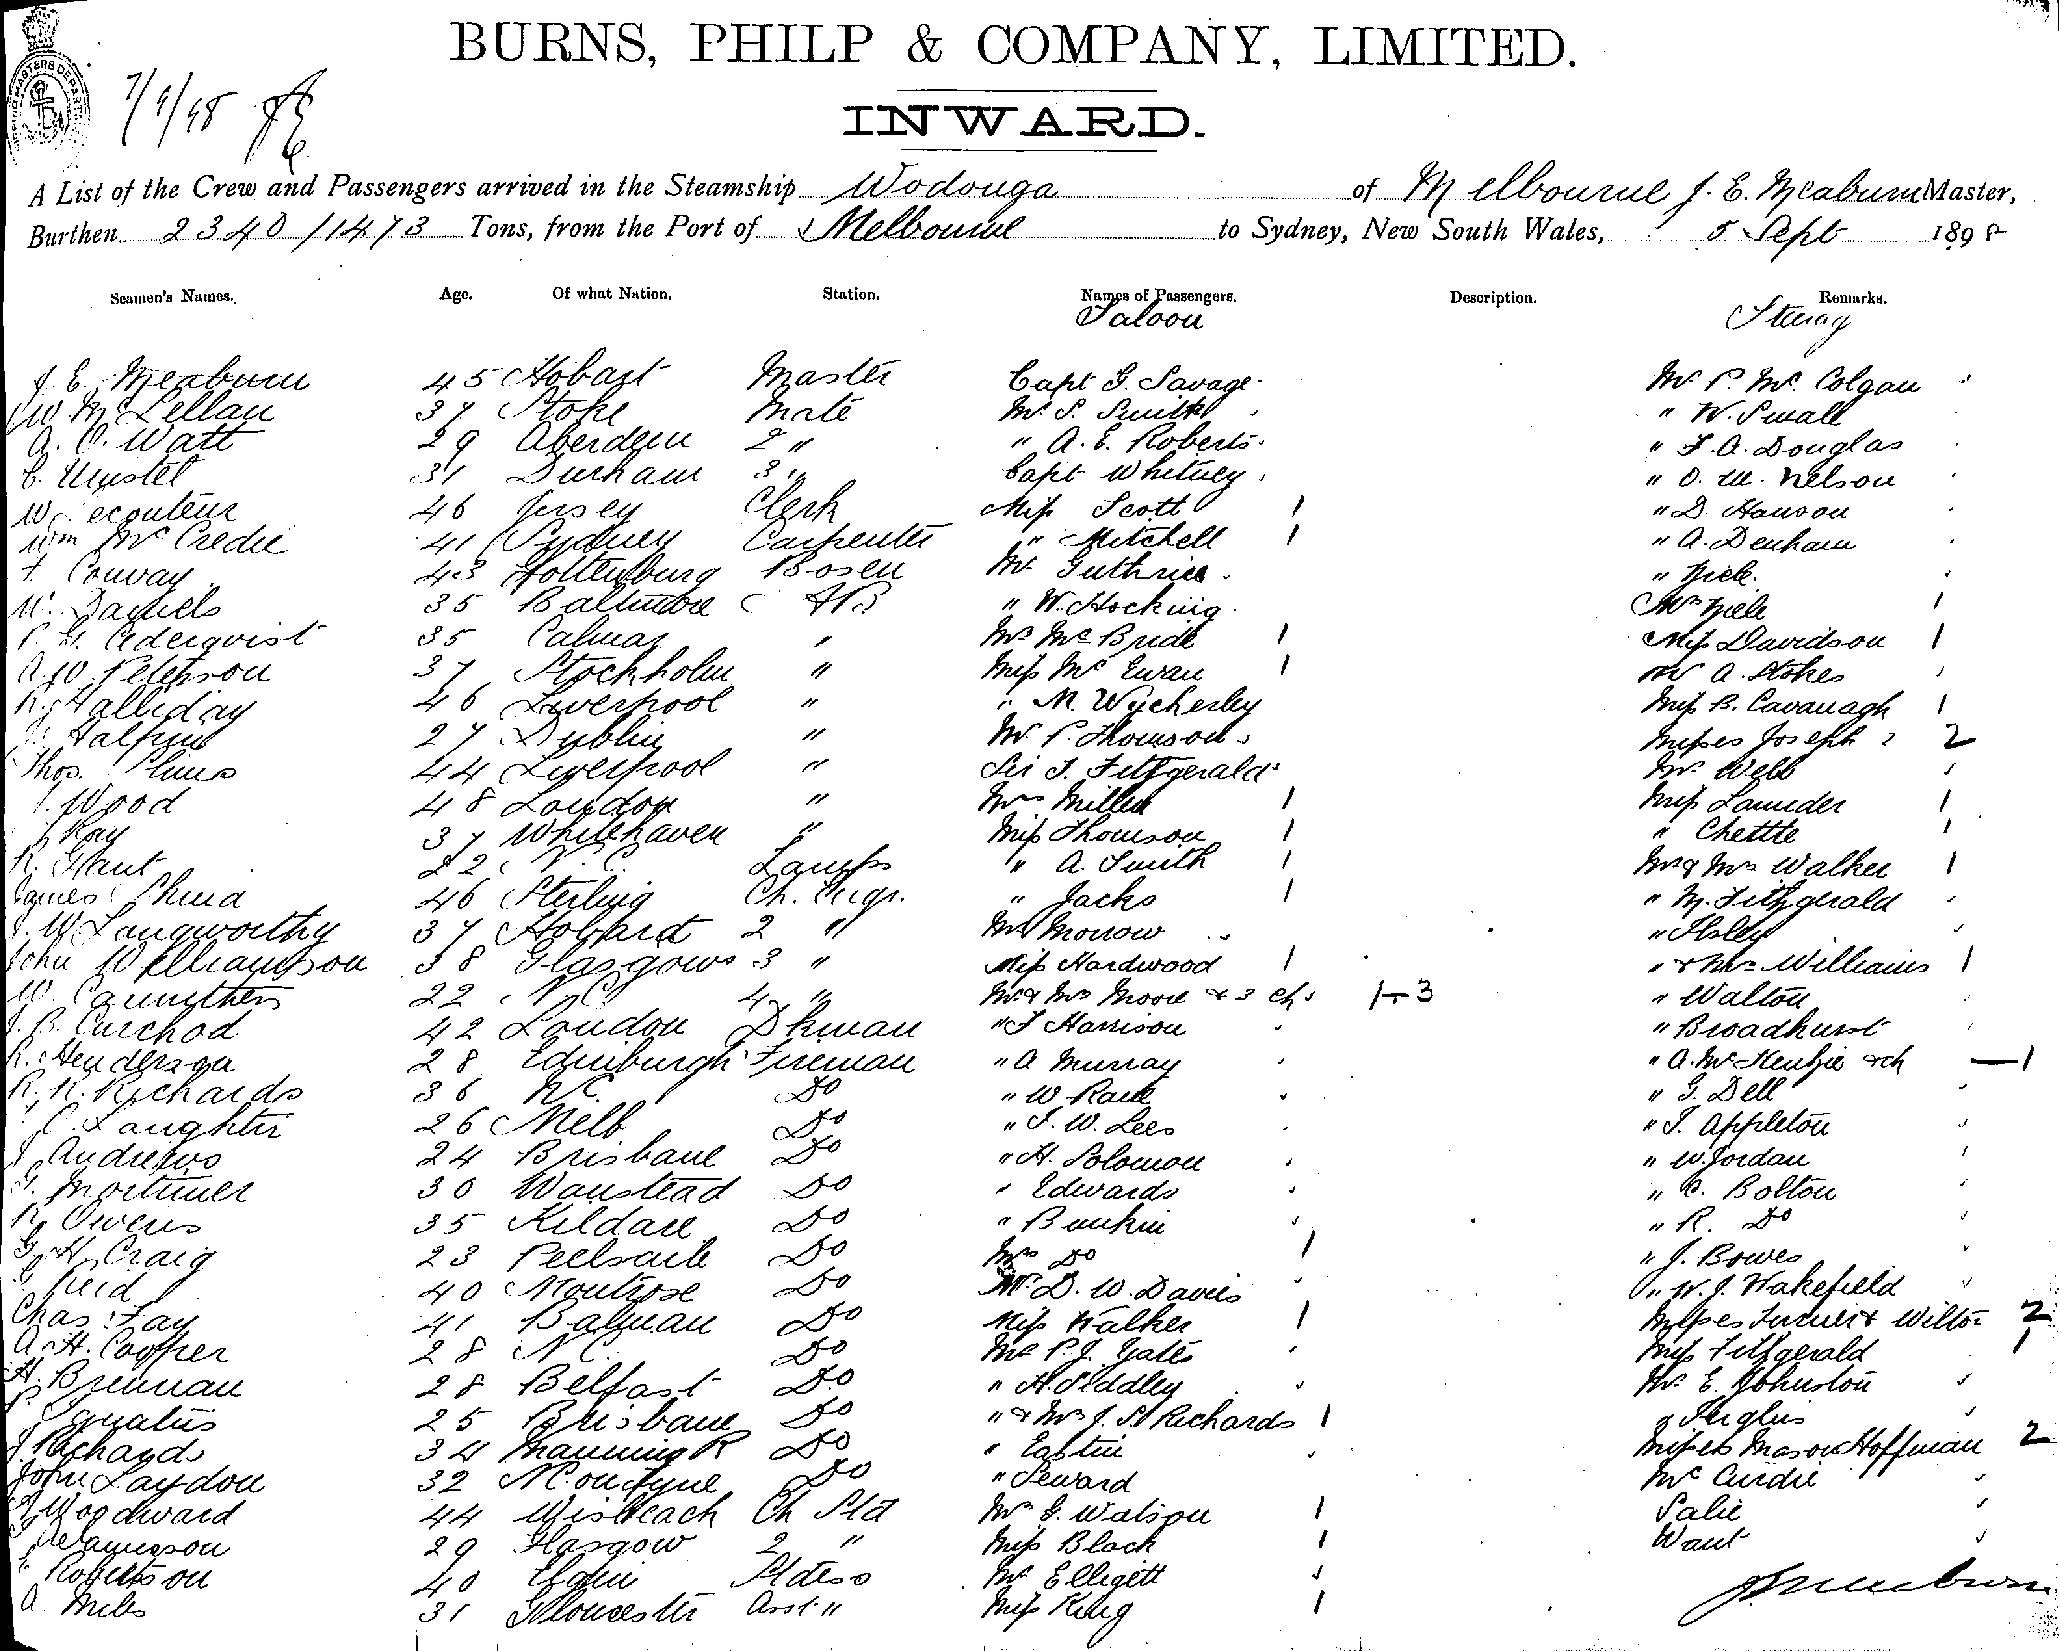 BURNS, PHILP & COMPANY, LIMITED.
INWARD.
A List of the Crew and Passengers arrived in the Steamship Wodonga of Melbourne J. E. Meaburn Master,
Burthen 2340/1473 Tons, from the Port of Melbourne to Sydney, New South Wales, 5 Sept 1898
Seamen's Names. Age. Of what Nation. Station. Names of Passengers. Description. Remarks.
Saloon
J. E. Meaburn 45 Hobart Master Capt G. Savage Mr P. Mc Colgan
W McLellan 37 Stoke Mate Mr S. Smith " W. Swall
A. C. Watt 29 Aberdeen 2 " " A. E. Roberts " F. A. Douglas
31 Durham 3 " Capt Whitney " Nelson
46 Jersey Clerk Miss Scott 1 " D Hanson
Wm McCredie 41 Sydney Carpenter " Mitchell 1 " A. Denham
Conway 43 Bosen Mr Guthrie
W. Daniels 35 Baltimore AB " W. Hocking 1
35 Calmar " Mrs McBride 1 Miss Davidson 1
Peterson 37 Stockholm " Miss McEwan 1 Mr A. Stokes
R. Halliday 46 Liverpool " " M. Wycherley Miss B. Cavanagh 1
Halpin 27 Dublin " Mr P. Thomson Misses Joseph 2 2
Thos. 44 Liverpool " Sir T. Fitzgerald Mr Webb
Wood 48 London " Mrs Miller 1 Miss Launder 1
Kay 37 Whitehaven " Miss Thomson 1 " 1
R. Grant 22 N.C. Lamps " A. Smith 1 Mr & Mrs Walker 1
James 46 Sterling Ch. Engr. " Jacks 1 " M. Fitzgerald
J. W Langworthy 37 Hobard 2 " Mr Morrow
John Williamson 38 Glasgow 3 " Miss Hardwood 1 " & Mrs Williams 1
W. Carruthers 22 N C 4 " Mr & Mrs Moore & 3 chs 1-3 " Walton
J. B. Curchod 42 London Dkman " J Harrison " Broadhurst
R. Henderson 28 Edinburgh Fireman " A Murray " & ch — 1
R. R. Richards 36 N.C. Do " W. " G. Dell
Laughter 26 Melb Do " J. W. Lees " J. Appleton
J Andrews 24 Brisbane Do " H. Solomon " W. Jordan
G. Mortimer 30 Wanstead Do " Edwards " C. Bolton
R Owens 35 Kildare Do " " R. Do
G. H. Craig 23 Do Mrs Do 1 " J. Bowes
G Reid 40 Montrose Do Mr D. W. Davies " W. J. Wakefield
Chas. Fay 41 Balmain Do Miss Walker 1 Misses Turner & Wilton 2
A. H. Cooper 28 N C Do Mr P. J. Yates Miss Fitzgerald 1
H. Brennan 28 Belfast Do " H. Siddley Mr E. Johnston
Ignatius 25 Brisbane Do " & Mrs J. S. Richards 1
J. Richards 34 Manning R Do " Eastin Misses Mason Hoffman 2
John Laydon 32 N C on Tyne Do " Seward
Woodward 44 Wisbeach Ch Std Mrs G. Watson 1
29 Glasgow 2 " Miss Black 1 Want
Robertson 40 Elgin Stdess Mr Elligett
A. Miles 31 Gloucester Asst " Miss King 1